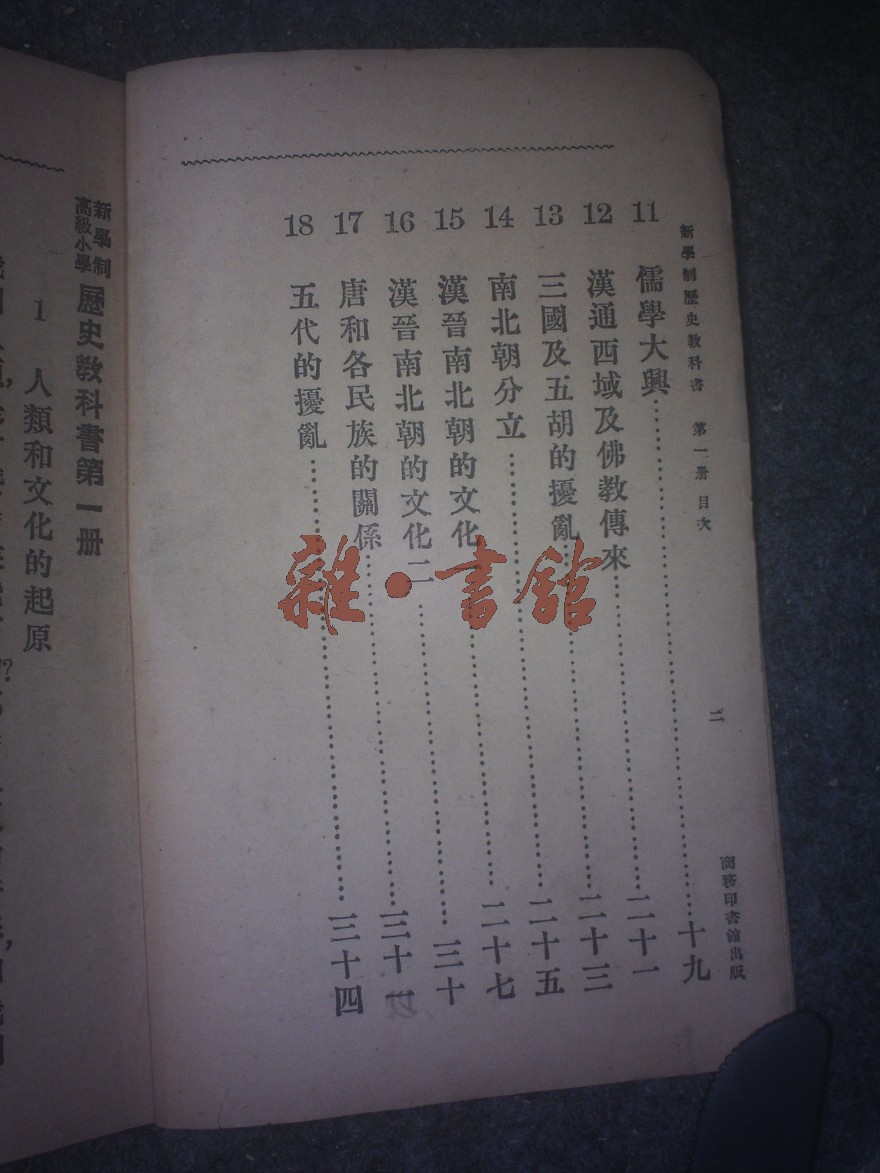 新學制歷史教科書 第一册 目次
二
商務印書館出版
11 儒學大興……十九
12 漢通西域及佛教傳來……二十一
13 三國及五胡的擾亂……二十三
14 南北朝分立……二十五
15 漢晉南北朝的文化……二十七
16 漢晉南北朝的文化二……三十
17 唐和各民族的關係……三十一
18 五代的擾亂……三十四
雜·書館
新學制
高級小學
歷史教科書第一册
1 人類和文化的起原